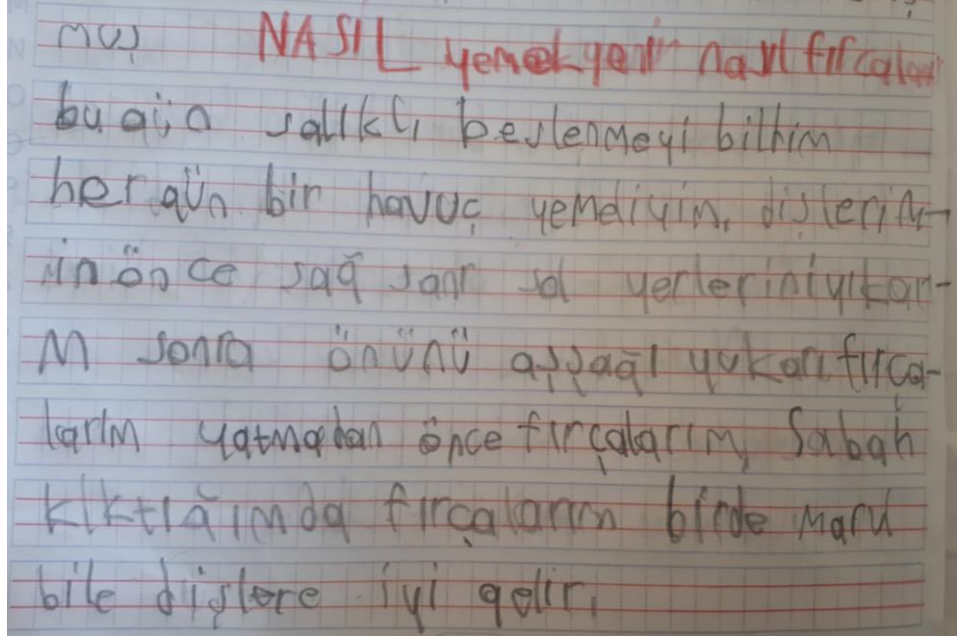 muş NASIL yemek yerim nasıl fırcalar
bu gün sallıklı beslenmeyi bilhim
her gün bir havuç yemeliyim, dişlerim-
in ön ce sağ sonr sol yerleriniyıkar-
M sonra önünü aşşağı yukarı fırca-
larım yatmadan önce fırçalarım, Sabah
kıktığımda fırçalarım birde maru
bile dişlere iyi gelir.